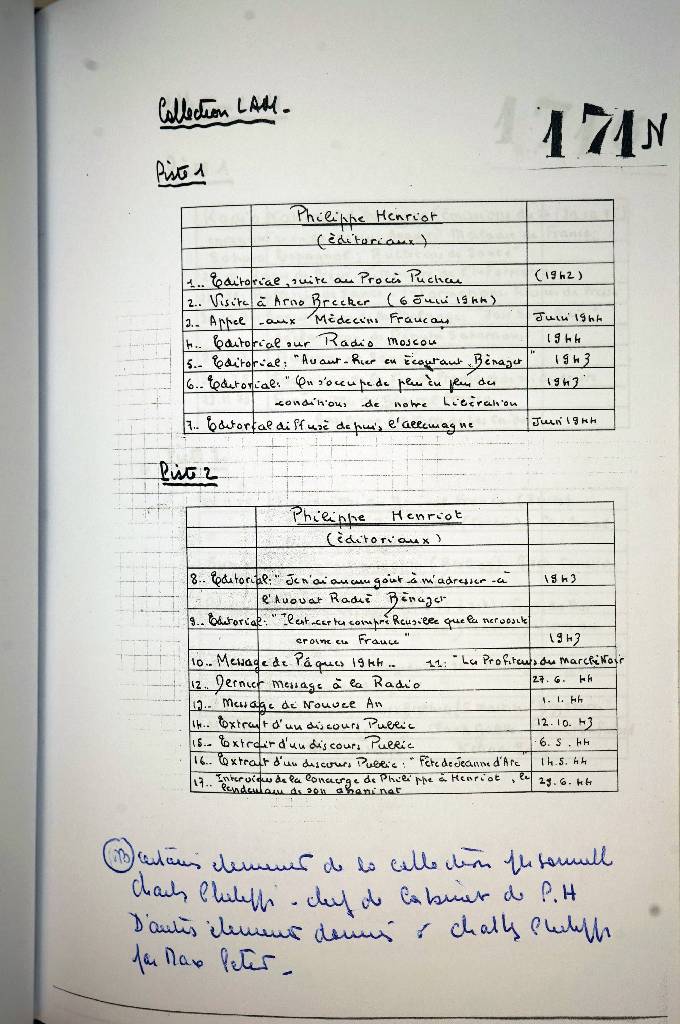 Collection LAM.
171 N
Piste 1
Philippe Henriot
(éditoriaux)
1.. Editorial, suite au Procès Pucheu (1942)
2.. Visite à Arno Brecker (6 Juin 1944)
3.. Appel aux Médecins Francais Juin 1944
4.. Editorial sur Radio Moscou 1944
5.. Editorial: "Avant-Hier en Ecoutant Bénazet" 1943
6.. Editorial: "On s'occupe de plus en plus des 1943
conditions de notre Libération
7.. Editorial diffusé depuis l'allemagne Juin 1944
Piste 2
Philippe Henriot
(éditoriaux)
8.. Editorial: "Je n'ai aucun goût à m'adresser à 1943
l'Avouat Radié Bénazet
9.. Editorial: "Il est certes compréhensible que la nervosité
croisse en France" 1943
10.. Message de Pâques 1944.. 11: "Les Profiteurs du Marché Noir
12.. Dernier message à la Radio 27.6. 44
13.. Message de Nouvel An 1.1.44
14.. Extrait d'un discours Public 12.10.43
15.. Extrait d'un discours Public 6.5.44
16.. Extrait d'un discours Public: "Fête de Jeanne d'Arc" 14.5.44
17.. Interview de la Concierge de Philippe à Henriot, le 29.6.44
lendemain de son assassinat
certains element de la collection personnelle
Charles Philippe - chef de Cabinet de P.H
D'autres element donnés Charles Philippe
par Max Peter -